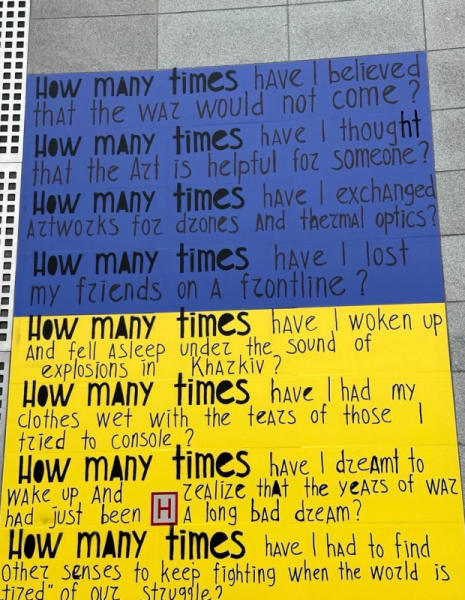 How many times have I believed
that the war would not come?
How many times have I thought
that the Art is helpful for someone?
How many times have I exchanged
Artworks for drones and thermal optics?
How many times have I lost
my friends on a frontline?
How many times have I woken up
And fell asleep under the sound of
explosions in Kharkiv?
How many times have I had my
clothes wet with the tears of those I
tried to console?
How many times have I dreamt to
wake up and realize that the years of war
had just been H a long bad dream?
How many times have I had to find
other senses to keep fighting when the world is
tired" of our struggle?